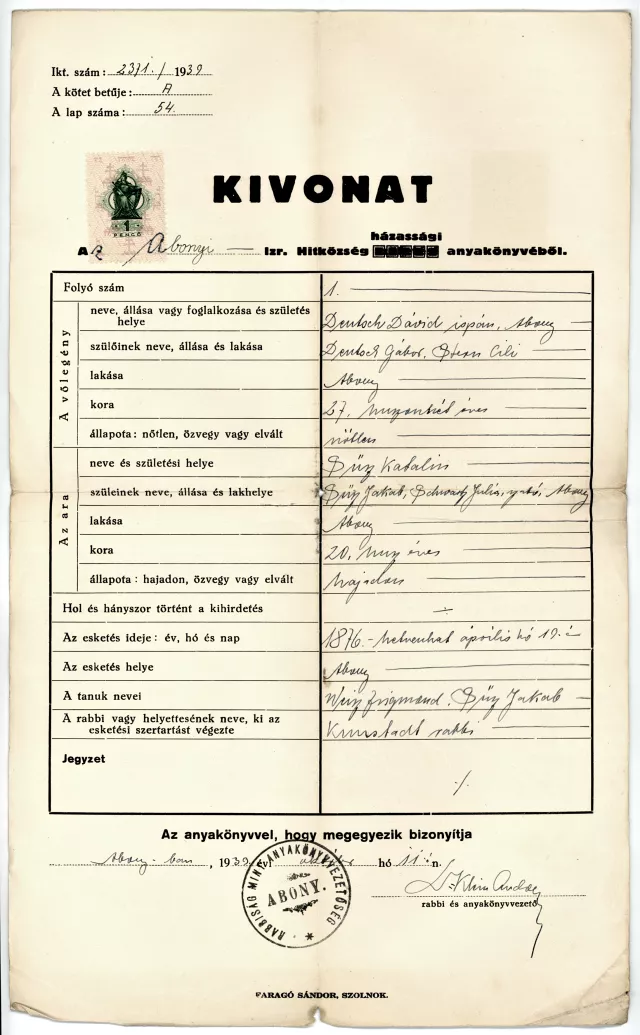 Ikt. szám: 2371./ 1939
A kötet betűje: A
A lap száma: 54.
KIVONAT
1
PENGŐ
Az Abonyi — Izr. Hitközség házassági anyakönyvéből.
Folyó szám 1.
A vőlegény
neve, állása vagy foglalkozása és születés helye Deutsch Dávid ispán, Abony
szülőinek neve, állása és lakása Deutsch Gábor, Stern Cili
lakása Abony
kora 27. huszonhét éves
állapota: nőtlen, özvegy vagy elvált nőtlen
Az ara
neve és születési helye Katalin
szüleinek neve, állása és lakhelye Jakab, Schwarz Julia, Abony
lakása Abony
kora 20. husz éves
állapota: hajadon, özvegy vagy elvált hajadon
Hol és hányszor történt a kihirdetés ÷
Az esketés ideje: év, hó és nap 1876.- hetvenhat április hó 19.-i
Az esketés helye Abony
A tanuk nevei Weisz Zsigmond, Jakab
A rabbi vagy helyettesének neve, ki az esketési szertartást végezte Kunstadt rabbi
Jegyzet ./.
Az anyakönyvvel, hogy megegyezik bizonyítja
Abony-ban, 1939 évi október hó 11-én.
rabbi és anyakönyvvezető
RABBISÁG MINT ANYAKÖNYVVEZETŐSÉG
ABONY.
FARAGÓ SÁNDOR, SZOLNOK.